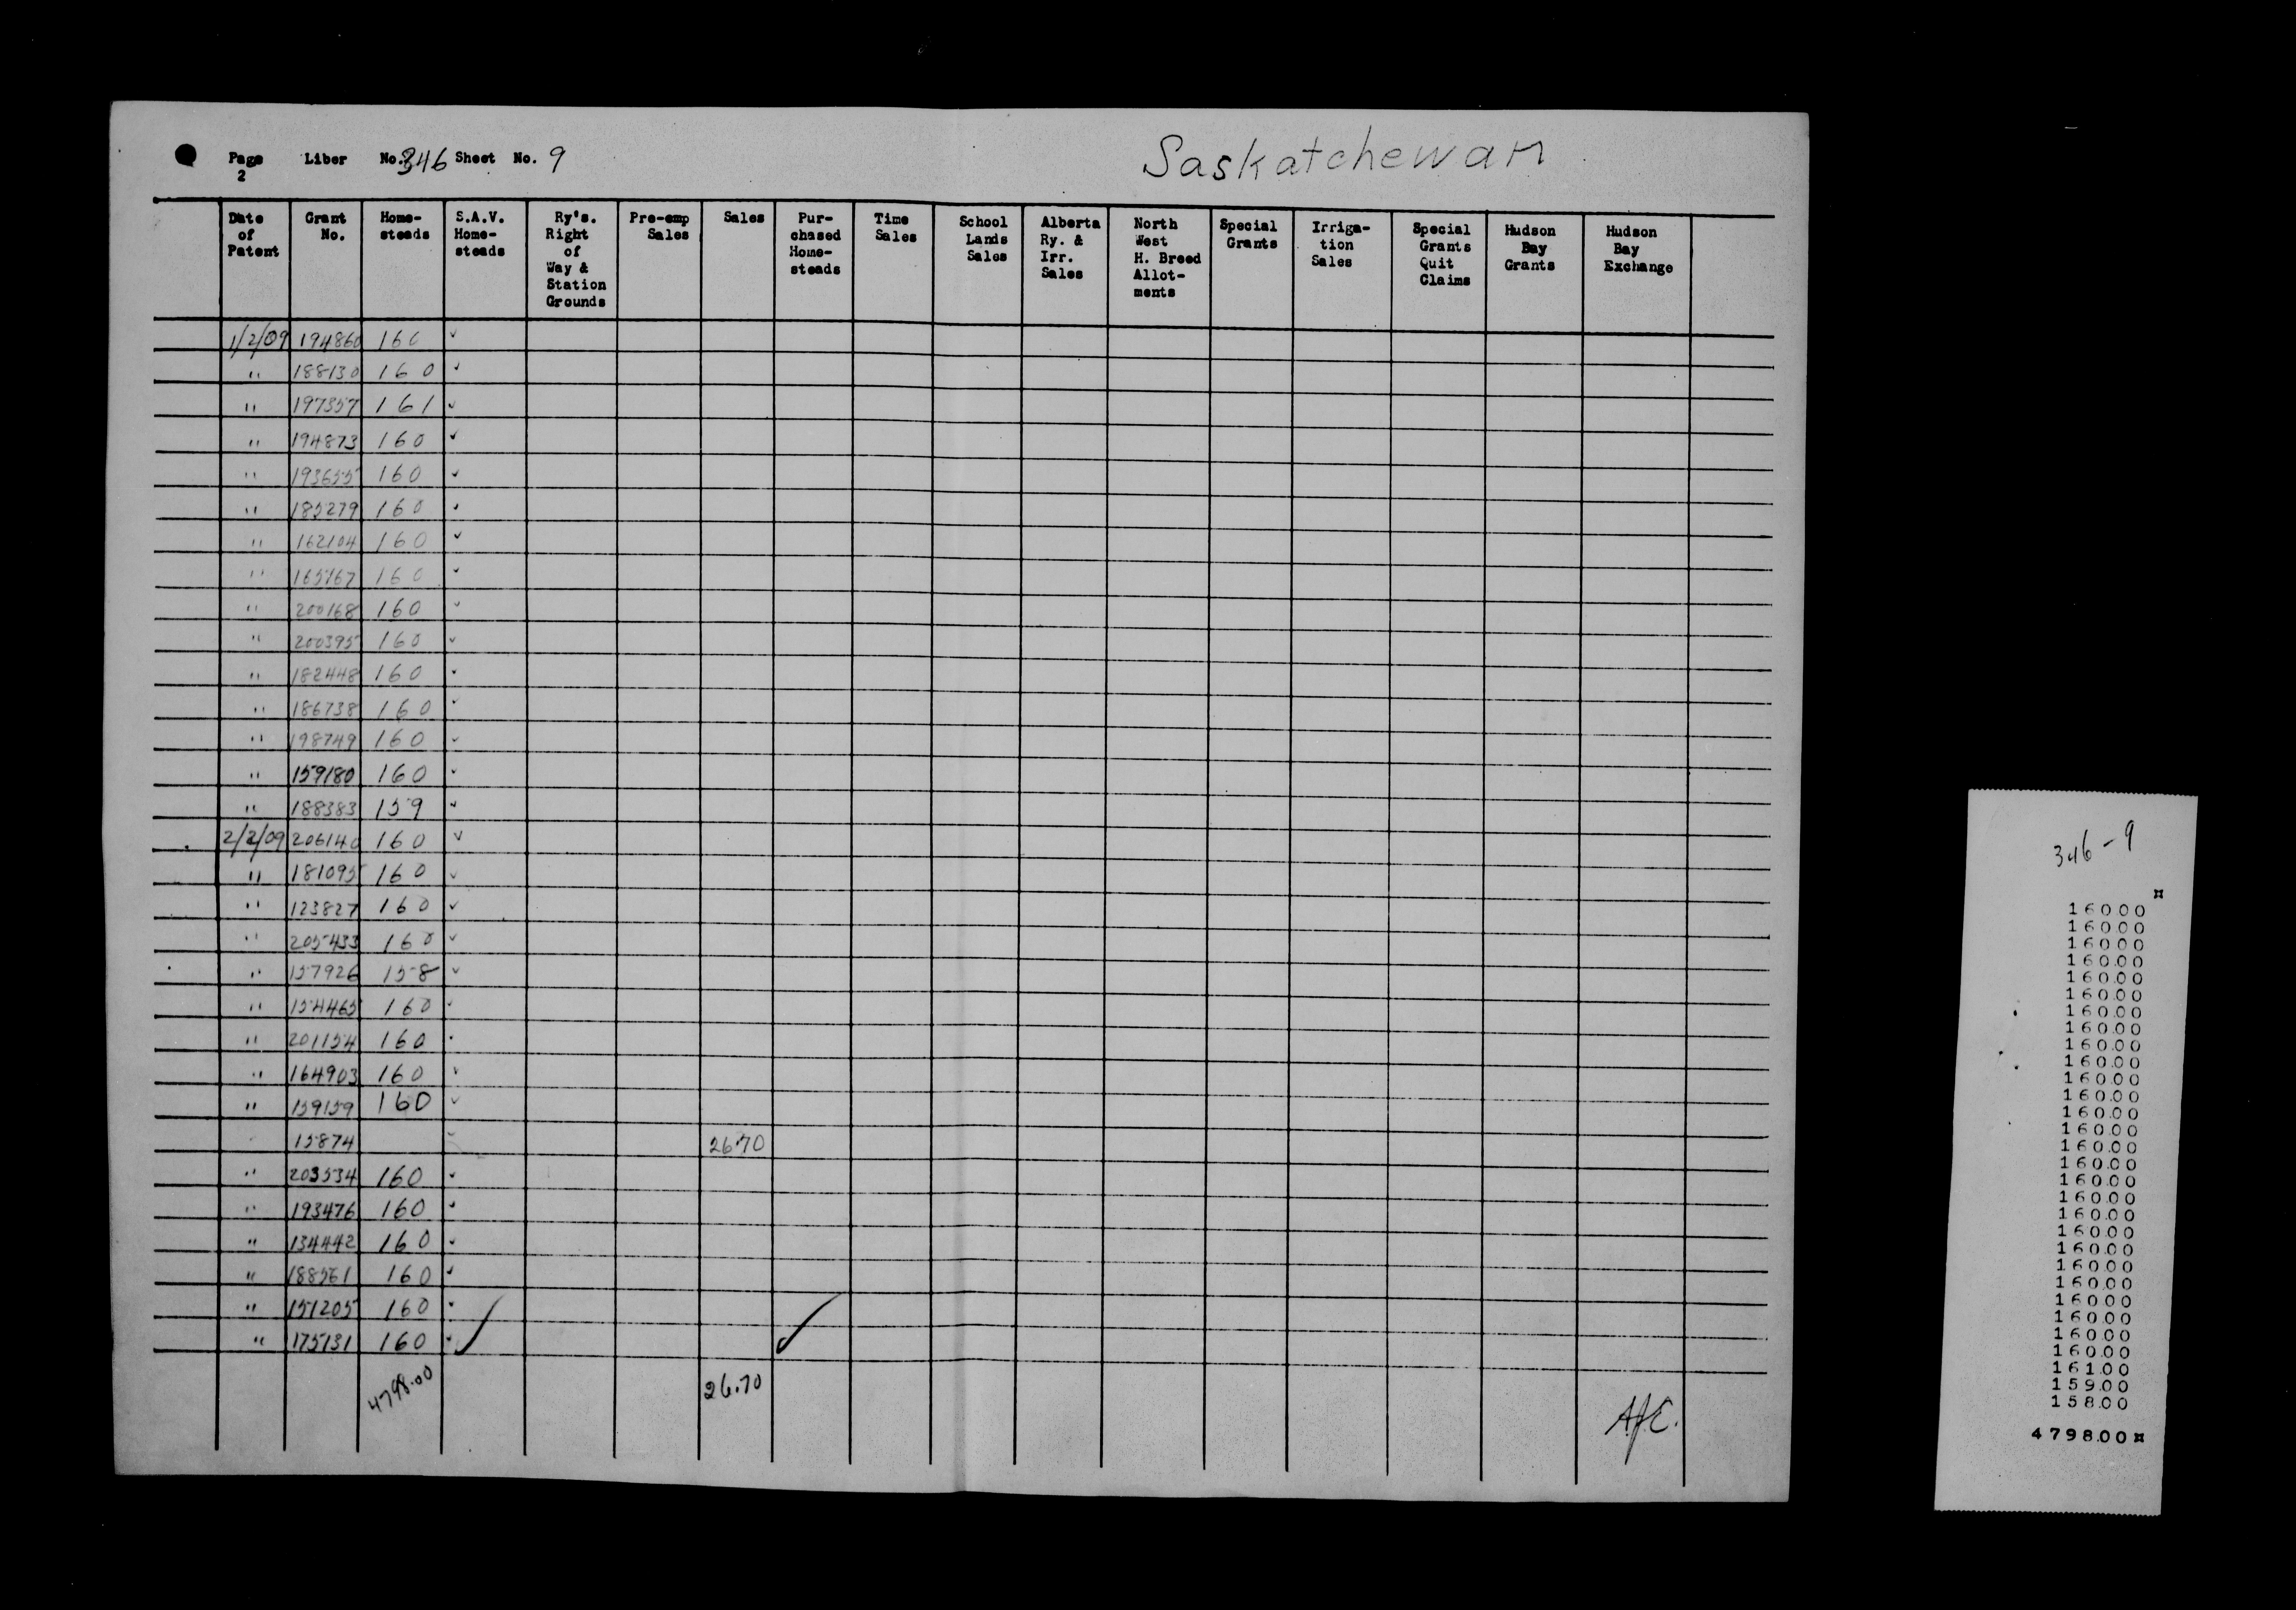 Page 2 Liber No. 346 Sheet No. 9
Saskatchewan
Date of Patent | Grant No. | Home-steads | S.A.V. Home-steads | Ry's. Right of Way & Station Grounds | Pre-emp Sales | Sales | Pur-chased Home-steads | Time Sales | School Lands Sales | Alberta Ry. & Irr. Sales | North West H. Breed Allot-ments | Special Grants | Irriga-tion Sales | Special Grants Quit Claims | Hudson Bay Grants | Hudson Bay Exchange
1/2/09 194860 160 ✓
" 188130 160 ✓
" 197357 161 ✓
" 194873 160 ✓
" 193655 160 ✓
" 185279 160 ✓
" 162104 160 ✓
" 165767 160 ✓
" 200168 160 ✓
" 200395 160 ✓
" 182448 160 ✓
" 186738 160 ✓
" 198749 160 ✓
" 159180 160 ✓
" 188383 159 ✓
2/2/09 206140 160 ✓
" 181095 160 ✓
" 123827 160 ✓
" 205433 160 ✓
" 157926 158 ✓
" 154465 160 ✓
" 201154 160 ✓
" 164903 160 ✓
" 159159 160 ✓
" 15874 26.70
" 203534 160 ✓
" 193476 160 ✓
" 134442 160 ✓
" 188561 160 ✓
" 151205 160 ✓
" 175131 160 ✓
4798.00 26.70
346-9
¤
160.00
160.00
160.00
160.00
160.00
160.00
160.00
160.00
160.00
160.00
160.00
160.00
160.00
160.00
160.00
160.00
160.00
160.00
160.00
160.00
160.00
160.00
160.00
160.00
160.00
160.00
160.00
161.00
159.00
158.00
4798.00¤